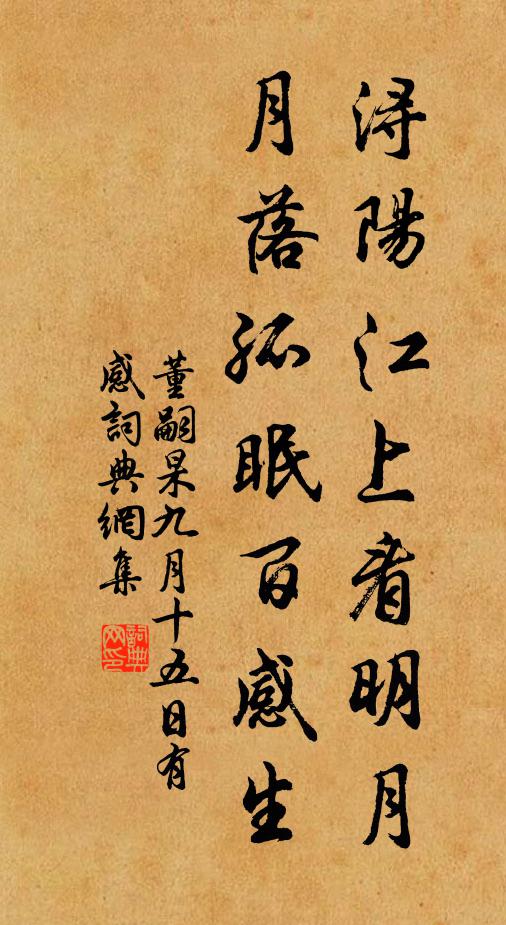 潯陽江上看明月
月落孤眠百感生
董嗣杲九月十五日有
感詞典網集
詞典
网印